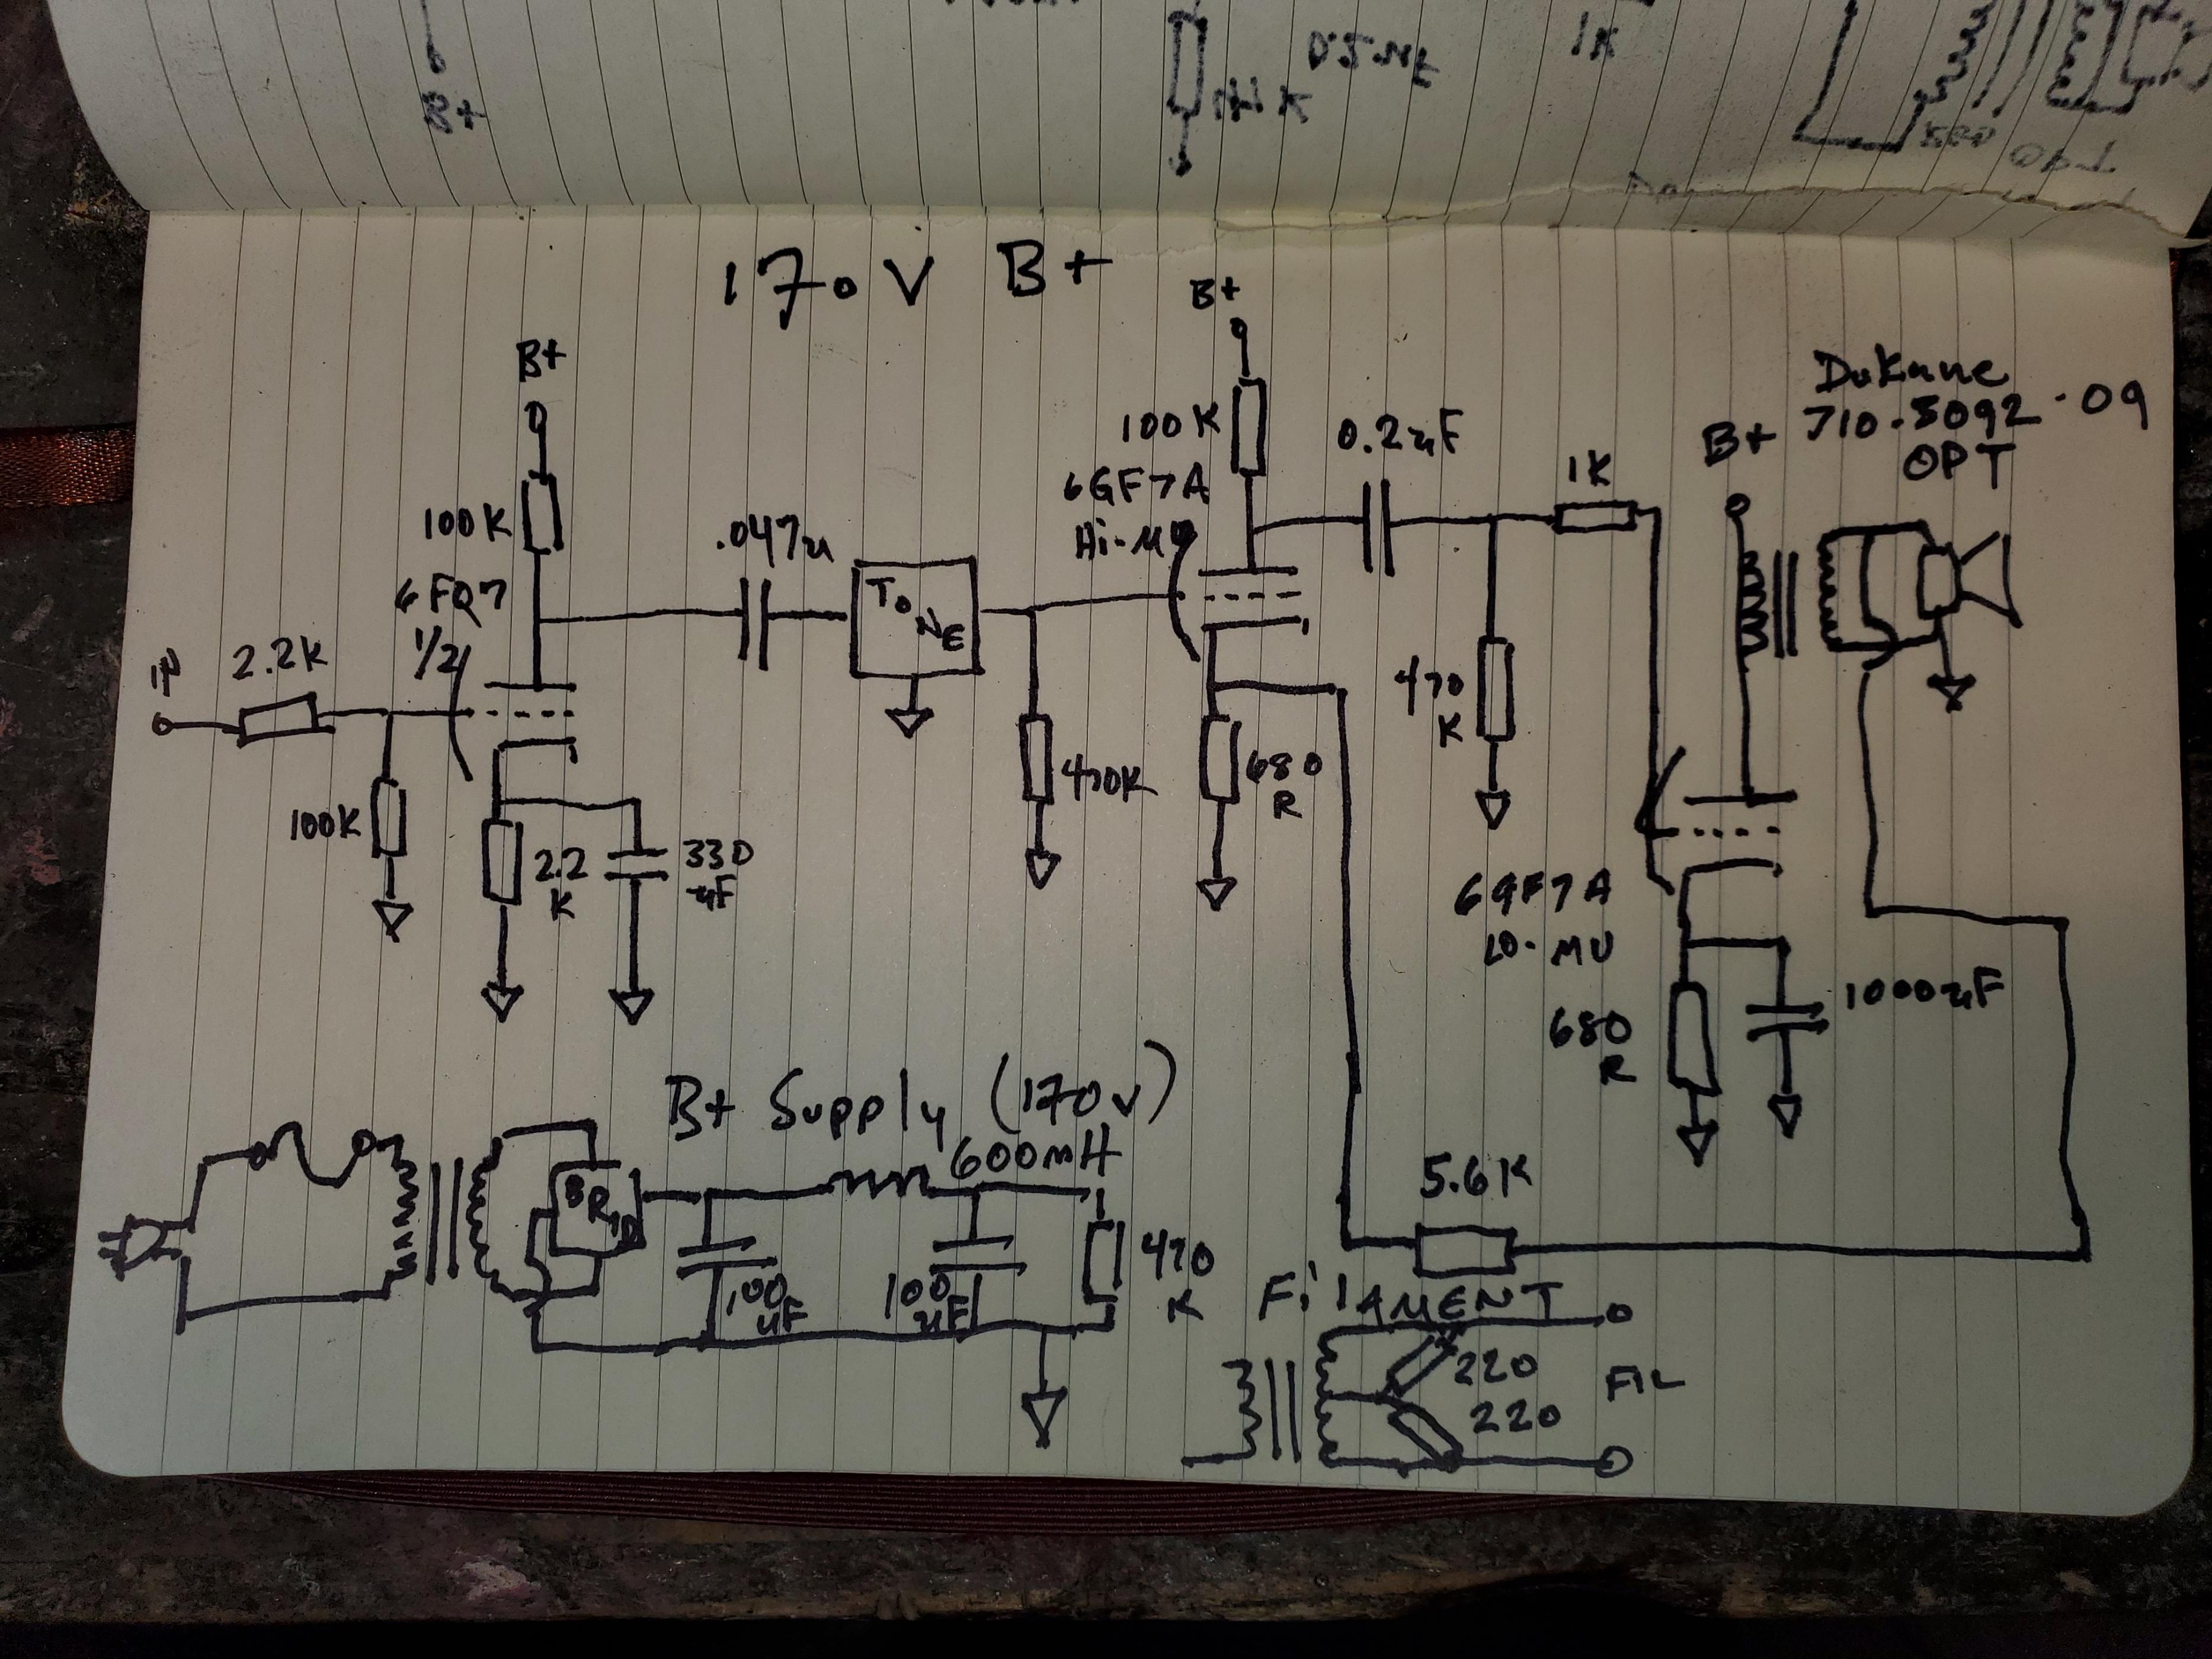 B+
1K
170V B+
B+
B+
DuKane
710-5092-09
OPT
B+
100K
6GF7A
Hi-MU
0.2uF
1K
100K
6FQ7
1/2
.047u
TONE
IN
2.2K
100K
2.2
K
330
uF
470K
680
R
470
K
6GF7A
LO-MU
680
R
1000uF
B+ Supply (170v)
600mH
5.6K
BRID
100
uF
100
uF
470
K
FilAMENT
220
220
FIL